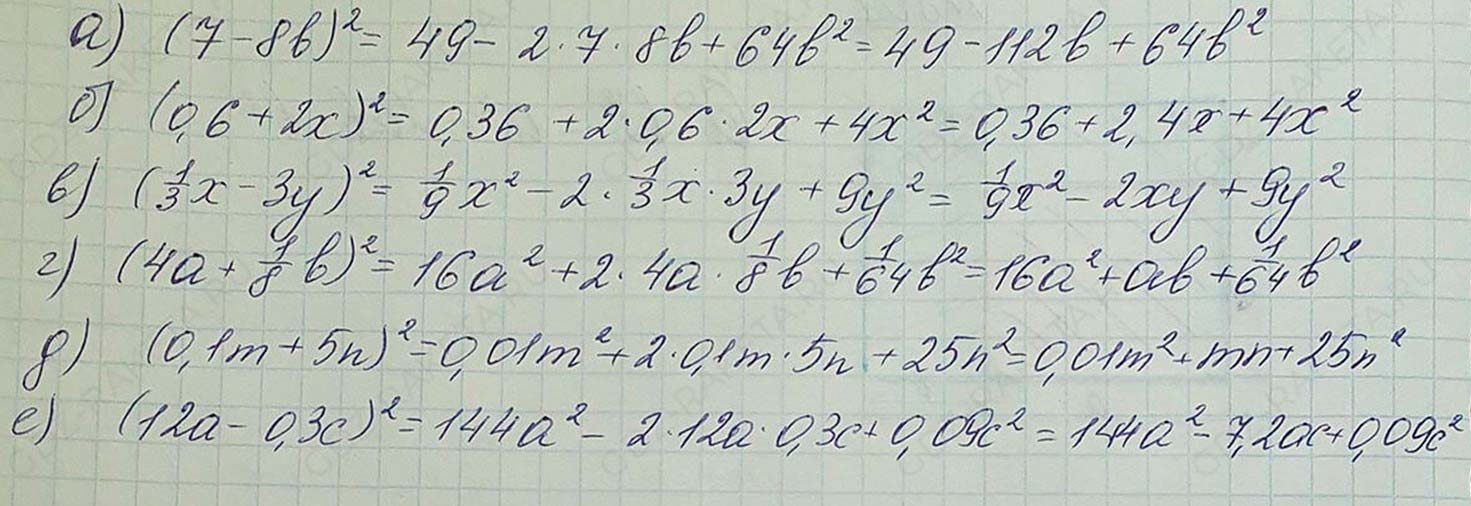 а) (7-8b)²= 49- 2·7·8b+64b²= 49-112b+64b²
б) (0,6+2x)²= 0,36 +2·0,6·2x+4x²= 0,36+2,4x+4x²
в) (1/3x-3y)²= 1/9x²-2·1/3x·3y+9y²= 1/9x²-2xy+9y²
г) (4a+1/8b)²= 16a²+2·4a·1/8b+1/64b²=16a²+ab+1/64b²
д) (0,1m+5n)²=0,01m²+2·0,1m·5n+25n²=0,01m²+mn+25n²
е) (12a-0,3c)²=144a²-2·12a·0,3c+0,09c²=144a²-7,2ac+0,09c²